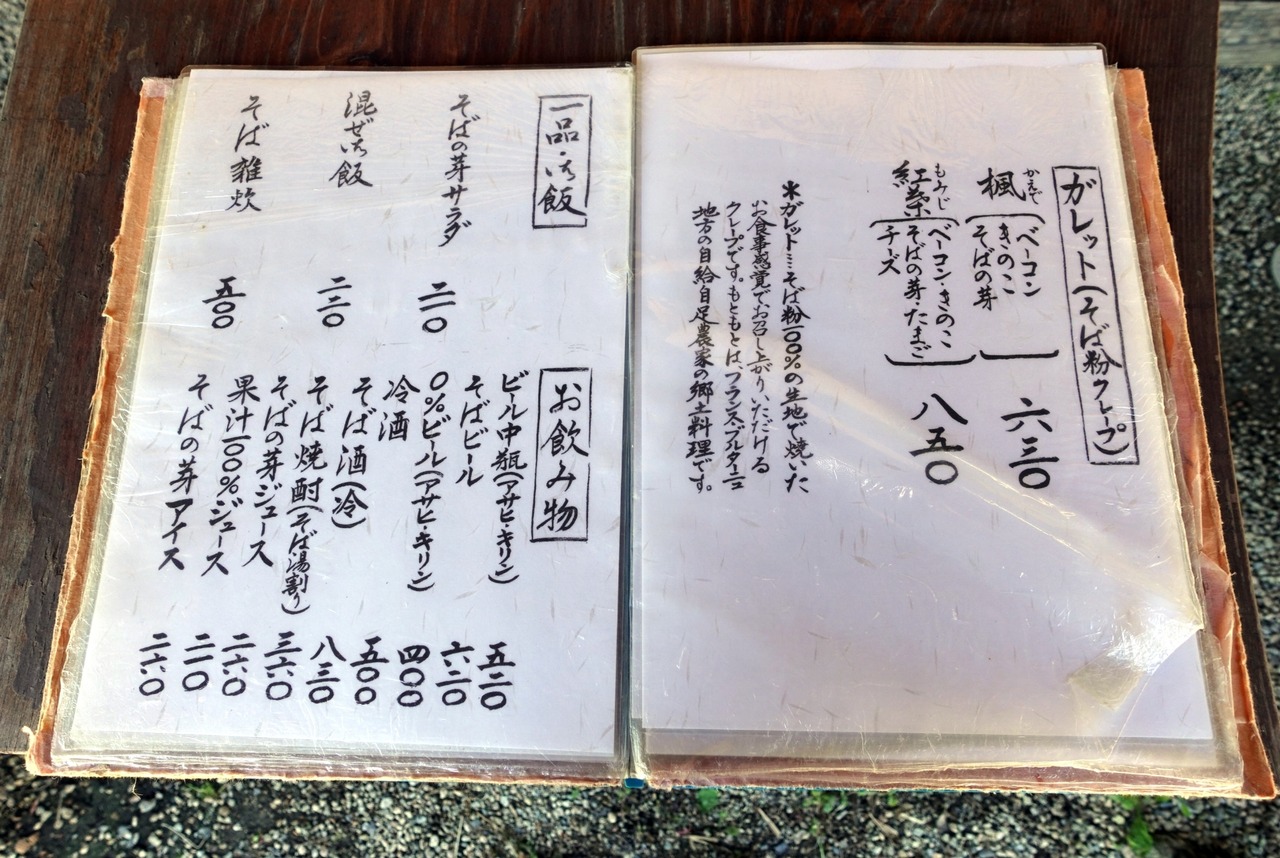 ガレット(そば粉クレープ)
かえで
楓
ベーコン
きのこ
そばの芽
六三〇
もみじ
紅葉
ベーコン・きのこ
そばの芽・たまご
チーズ
八五〇
*ガレット…そば粉100%の生地で焼いた
お食事感覚でお召し上がりいただける
クレープです。もともとは、フランス、ブルターニュ
地方の自給自足農家の郷土料理です。
一品・御飯
そばの芽サラダ 二一〇
混ぜ御飯 二二〇
そば雑炊 五〇〇
お飲み物
ビール中瓶(アサヒ・キリン) 五二〇
そばビール 六二〇
0%ビール(アサヒ・キリン) 四〇〇
冷酒 五〇〇
そば酒(冷) 八三〇
そば焼酎(そば湯割り) 三六〇
そばの芽ジュース 二六〇
果汁100%ジュース 二一〇
そばの芽アイス 二六〇